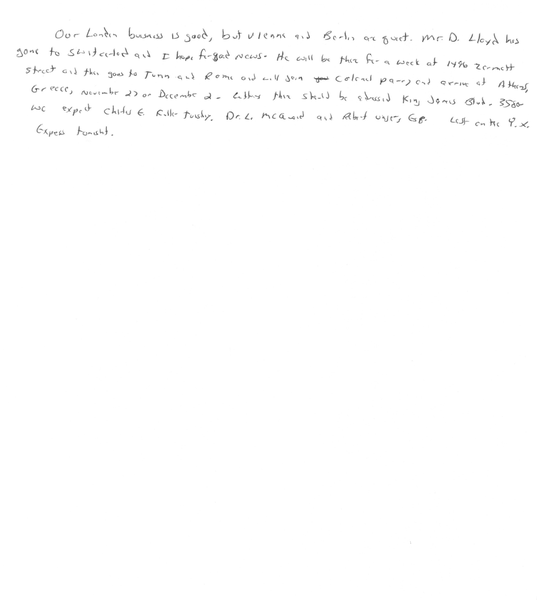 Our London business is good, but Vienna and Berlin are quiet. Mr. D. Lloyd has
gone to Switzerland and I hope for good news. He will be there for a week at 1496 Zermott
street and then goes to Turin and Rome and will join Colonel Parry and arrive at Athens,
Greece, November 27 or December 2. Letters there should be addressed King James Blvd. 3580.
We expect Charles E. Fuller Tuesday. Dr. L. McQuaid and Robert Unger, Esq. left on the Y.X.
Express tonight.